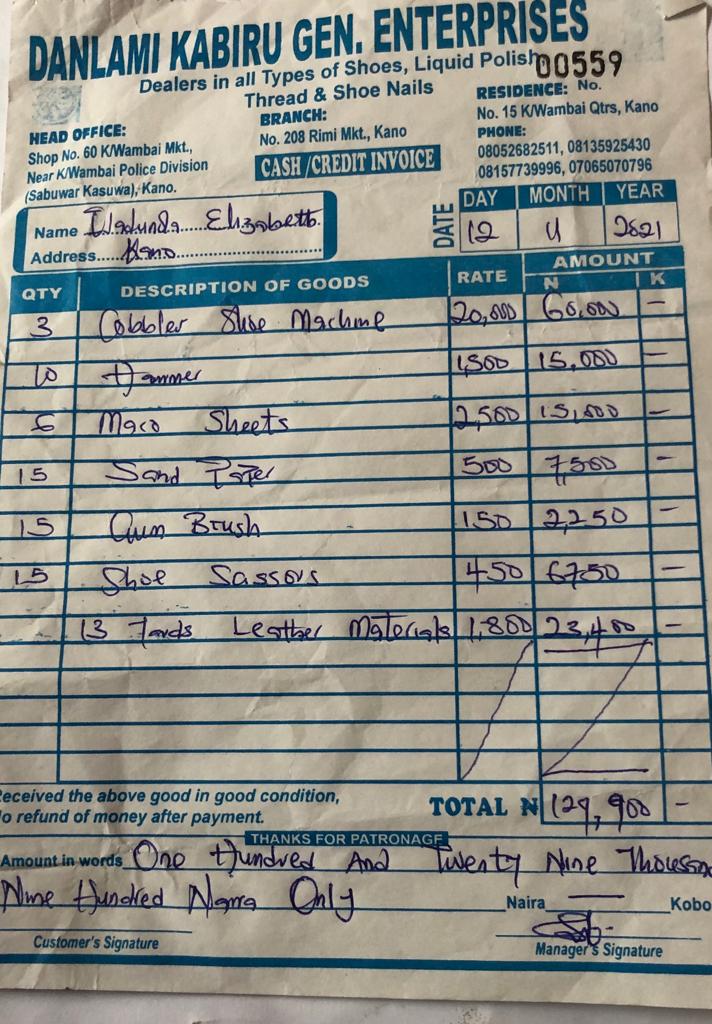 DANLAMI KABIRU GEN. ENTERPRISES
Dealers in all Types of Shoes, Liquid Polish
Thread & Shoe Nails
00559
HEAD OFFICE:
Shop No. 60 K/Wambai Mkt.,
Near K/Wambai Police Division
(Sabuwar Kasuwa), Kano.
BRANCH:
No. 208 Rimi Mkt., Kano
CASH/CREDIT INVOICE
RESIDENCE: No.
No. 15 K/Wambai Qtrs, Kano
PHONE:
08052682511, 08135925430
08157739996, 07065070796
Name Elizabeth
Address Kano
DATE DAY MONTH YEAR
12 4 2021
QTY DESCRIPTION OF GOODS RATE AMOUNT
N K
3 Cobbler Shoe Machine 20,000 60,000 —
10 Hammer 1,500 15,000 —
6 Maco Sheets 2,500 15,000 —
15 Sand Paper 500 7,500 —
15 Gum Brush 150 2,250 —
15 Shoe Sassors 450 6750 —
13 Yards Leather Materials 1,800 23,400 —
Received the above good in good condition,
No refund of money after payment.
TOTAL ₦ 129,900 —
THANKS FOR PATRONAGE
Amount in words One Hundred And Twenty Nine Thousand
Nine Hundred Naira Only Naira — Kobo
Customer's Signature
Manager's Signature